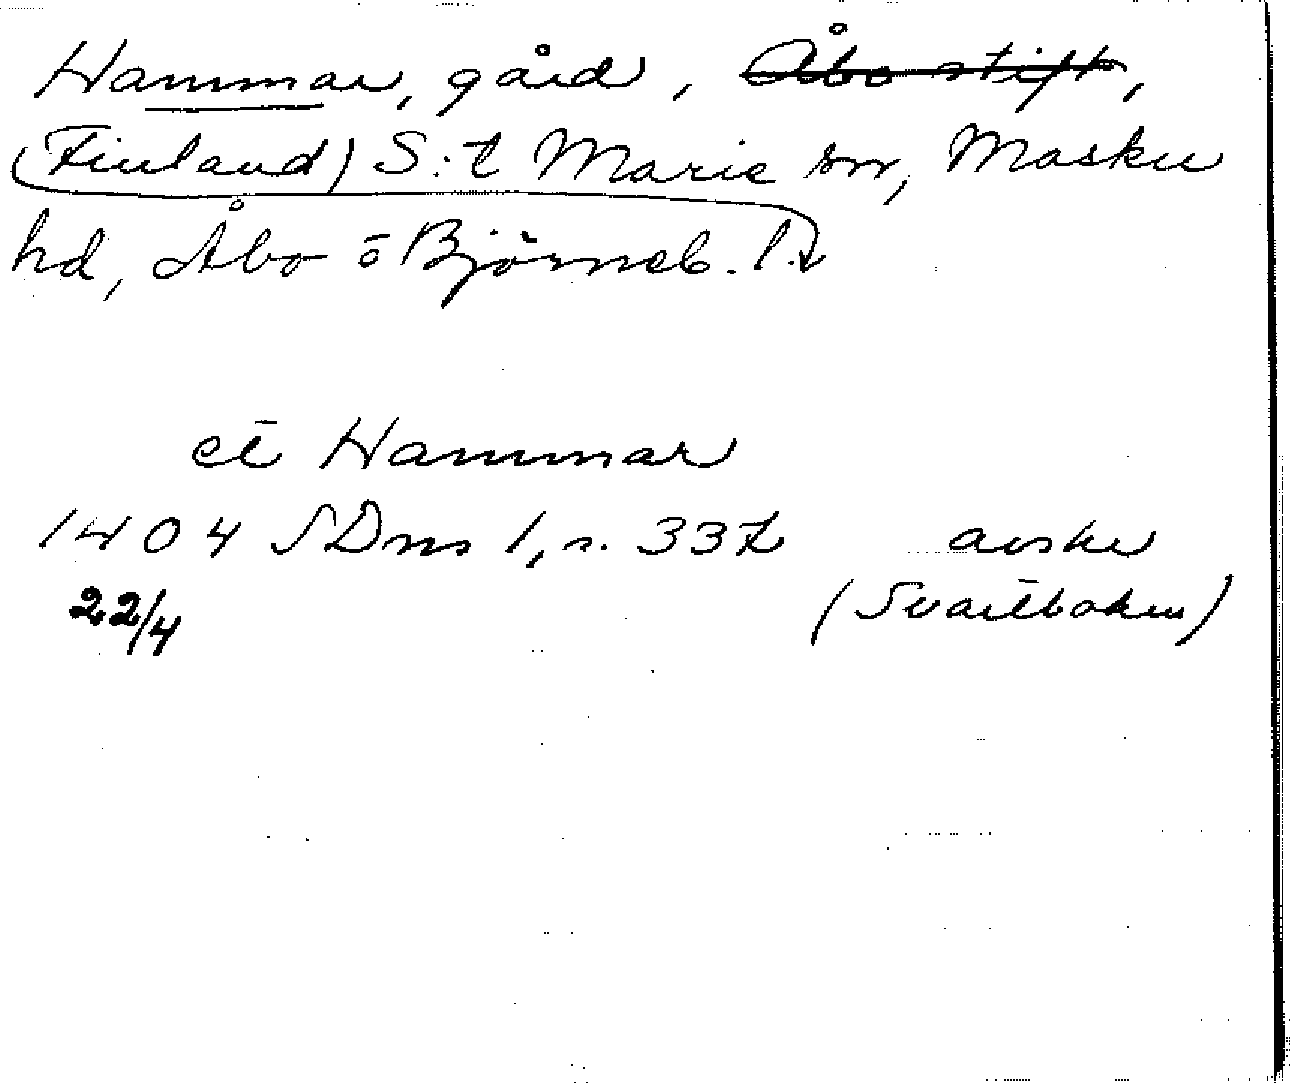 Hammar, gård, Åbo stift,
(Finland) S:t Marie sn, Masku
hd, Åbo o Björneb. l.
ct Hammar
1404 SDns 1, s. 337 avskr
22/4 (Svartboken)